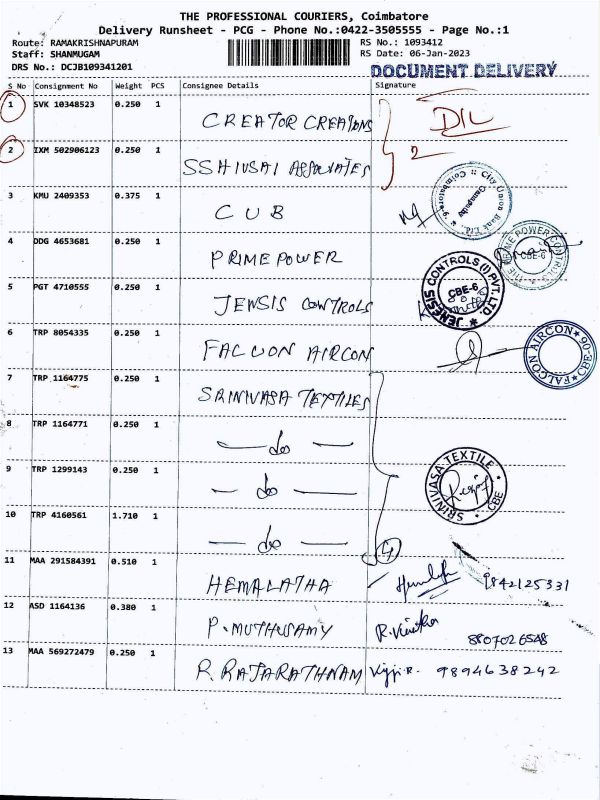 THE PROFESSIONAL COURIERS, Coimbatore
Delivery Runsheet - PCG - Phone No.:0422-3505555 - Page No.:1
Route: RAMAKRISHNAPURAM RS No.: 1093412
Staff: SHANMUGAM RS Date: 06-Jan-2023
DRS No.: DCJB109341201 DOCUMENT DELIVERY
S No Consignment No Weight PCS Consignee Details Signature
1 SVK 10348523 0.250 1 CREATOR CREATIONS DIL
2 IXM 502906123 0.250 1 SSHIVSAI ASSOVIATES 2
3 KMU 2409353 0.375 1 CUB City Union Bank Ltd. Ganapathy Coimbatore
4 DDG 4653681 0.250 1 PRIME POWER PRIME POWER CONTROLS CBE-6
5 PGT 4710555 0.250 1 JENSIS CONTROLS JENESIS CONTROLS (I) PVT. LTD. CBE-6
6 TRP 8054335 0.250 1 FALCUON AIRCON FALCON AIRCON CBE-06
7 TRP 1164775 0.250 1 SRINIVASA TEXTILES
8 TRP 1164771 0.250 1 — do —
9 TRP 1299143 0.250 1 — do — SRINIVASA TEXTILE CBE
10 TRP 4160561 1.710 1 — do — 4
11 MAA 291584391 0.510 1 HEMALATHA 9842125331
12 ASD 1164136 0.380 1 P. MUTHUSAMY 8807026548
13 MAA 569272479 0.250 1 R. RAJARATHNAM Viji.R. 9894638242